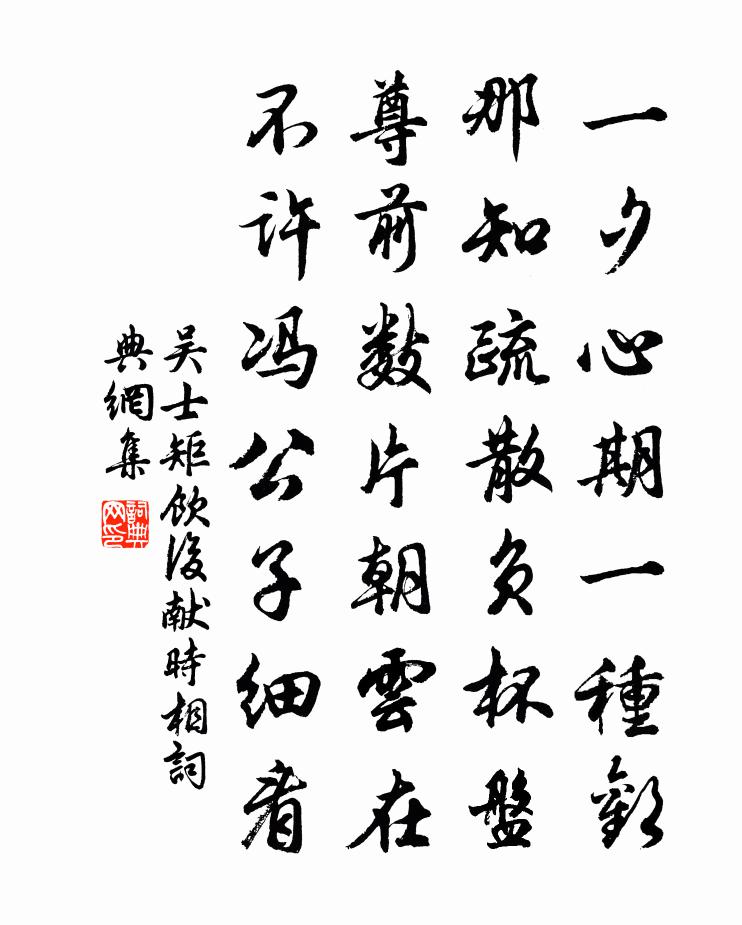 一夕心期一種歡
那知疏散负杯盤
尊前數片朝雲在
不许冯公子细看
吴士矩飲後献時相詞
典網集
詞典网印